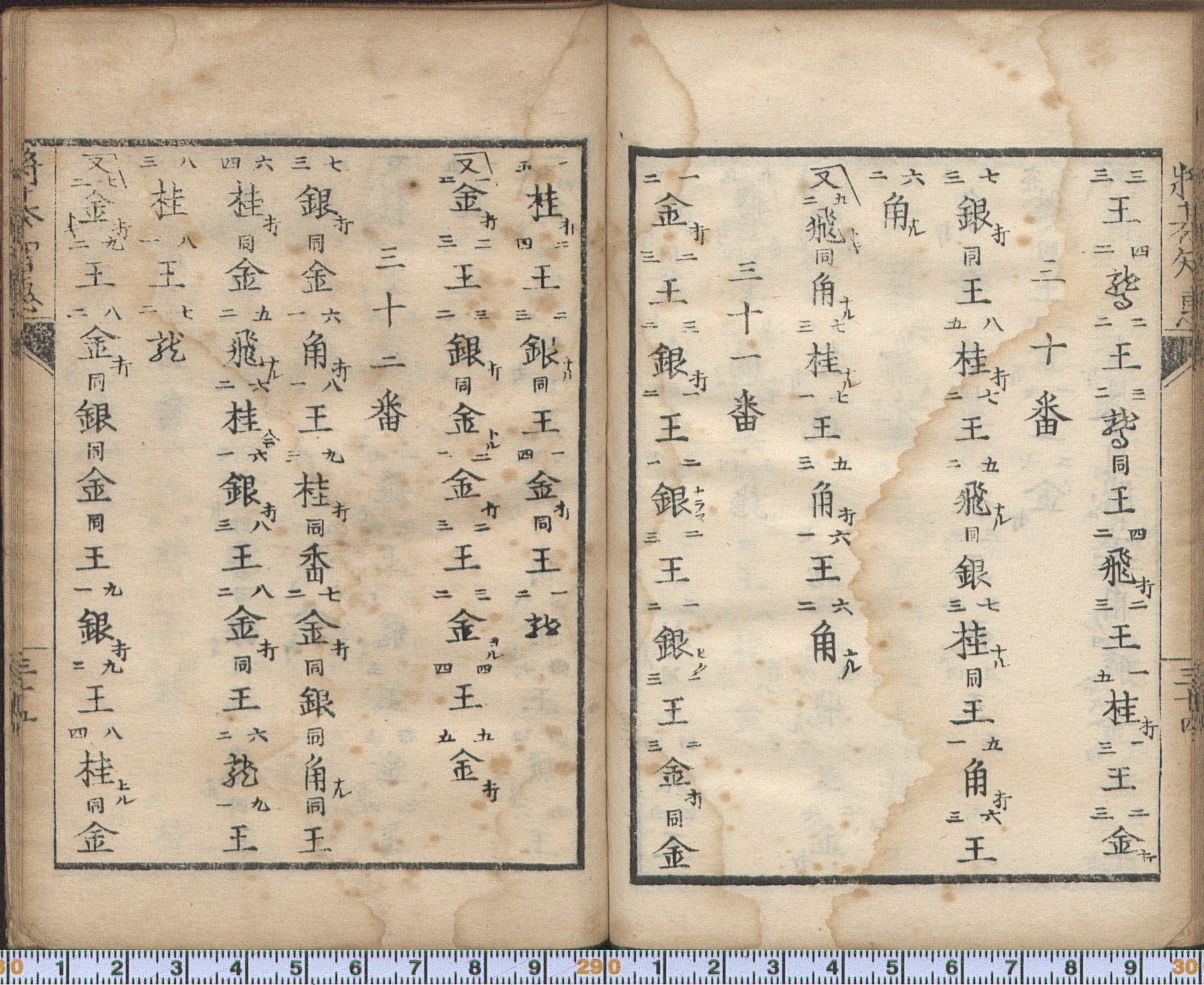 三三王四二二二王三二同王四二飛打二三王一五桂打一三王二三金打
三十番
七三銀打同王八五桂打七二王五二飛ナル同銀七三桂ナル同王五一角打六三王
六二角ナル
又九二飛ナル同角ナル七三桂ナル七一王五三角打六一王六二角ナル
三十一番
一二金打二三王二二銀打一二王二一銀ナラズ二三王一二銀ヒク一三王二三金打同金
三十四
一五桂打二四王二三銀ナル同王一四金打同王一二龍
又一二金打二三王三二銀打同金トル二一金打二三王三二金ヨル四四王五五金打
三十二番
七三銀打同金六一角打八一王九三桂打同香七二金打同銀同角ナル同王
六四桂打同金五二飛ナル六二桂合六一銀打八三王八二金打同王六二龍九一王
八三桂八一王七二龍
又七二金打九二王八二金打同銀同金同王九一銀打九二王八四桂上ル同金
三十五